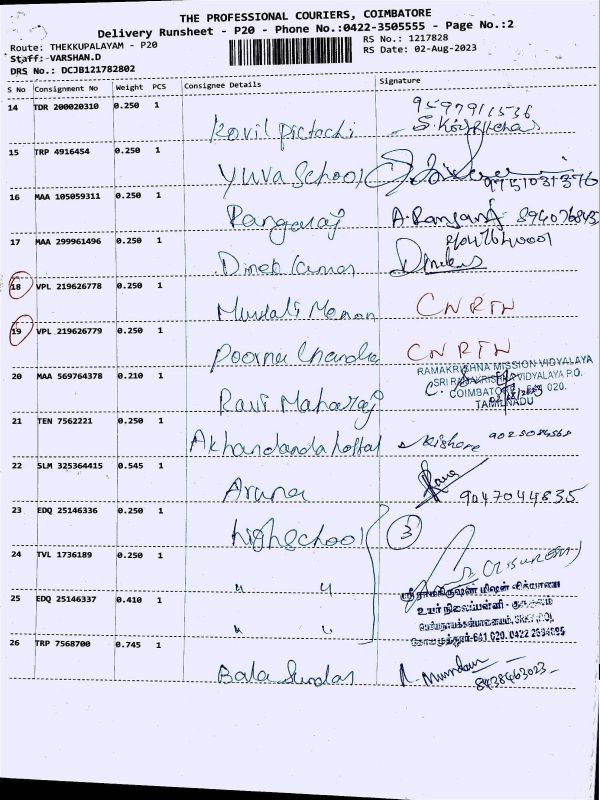 THE PROFESSIONAL COURIERS, COIMBATORE
Delivery Runsheet - P20 - Phone No.:0422-3505555 - Page No.:2
Route: THEKKUPALAYAM - P20
RS No.: 1217828
Staff: VARSHAN.D
RS Date: 02-Aug-2023
DRS No.: DCJB121782802
S No Consignment No Weight PCS Consignee Details Signature
14 TDR 200020310 0.250 1 Kovil Pictachi 9597911536
15 TRP 4916454 0.250 1 Yuva School 9751031376
16 MAA 105059311 0.250 1 Rangaraj A. Rangaraj 8940768435
17 MAA 299961496 0.250 1 Dinesh Kumar Dinesh
18 VPL 219626778 0.250 1 Murali Menon CNRTN
19 VPL 219626779 0.250 1 Poorna Chandra CNRTN
RAMAKRISHNA MISSION VIDYALAYA
SRI RAMAKRISHNA VIDYALAYA P.O.
COIMBATORE 020.
TAMILNADU
20 MAA 569764378 0.210 1 Ravi Maharaj
21 TEN 7562221 0.250 1 Akhandanda hostel Kishore
22 SLM 325364415 0.545 1 Aruna 9047044835
23 EDQ 25146336 0.250 1 high school 3
24 TVL 1736189 0.250 1 " "
ஸ்ரீ ராமகிருஷ்ண மிஷன் வித்யாலய
25 EDQ 25146337 0.410 1 " "
உயர் நிலைப்பள்ளி - குருகுலம்
26 TRP 7568700 0.745 1 Bala Sundar 8438463023